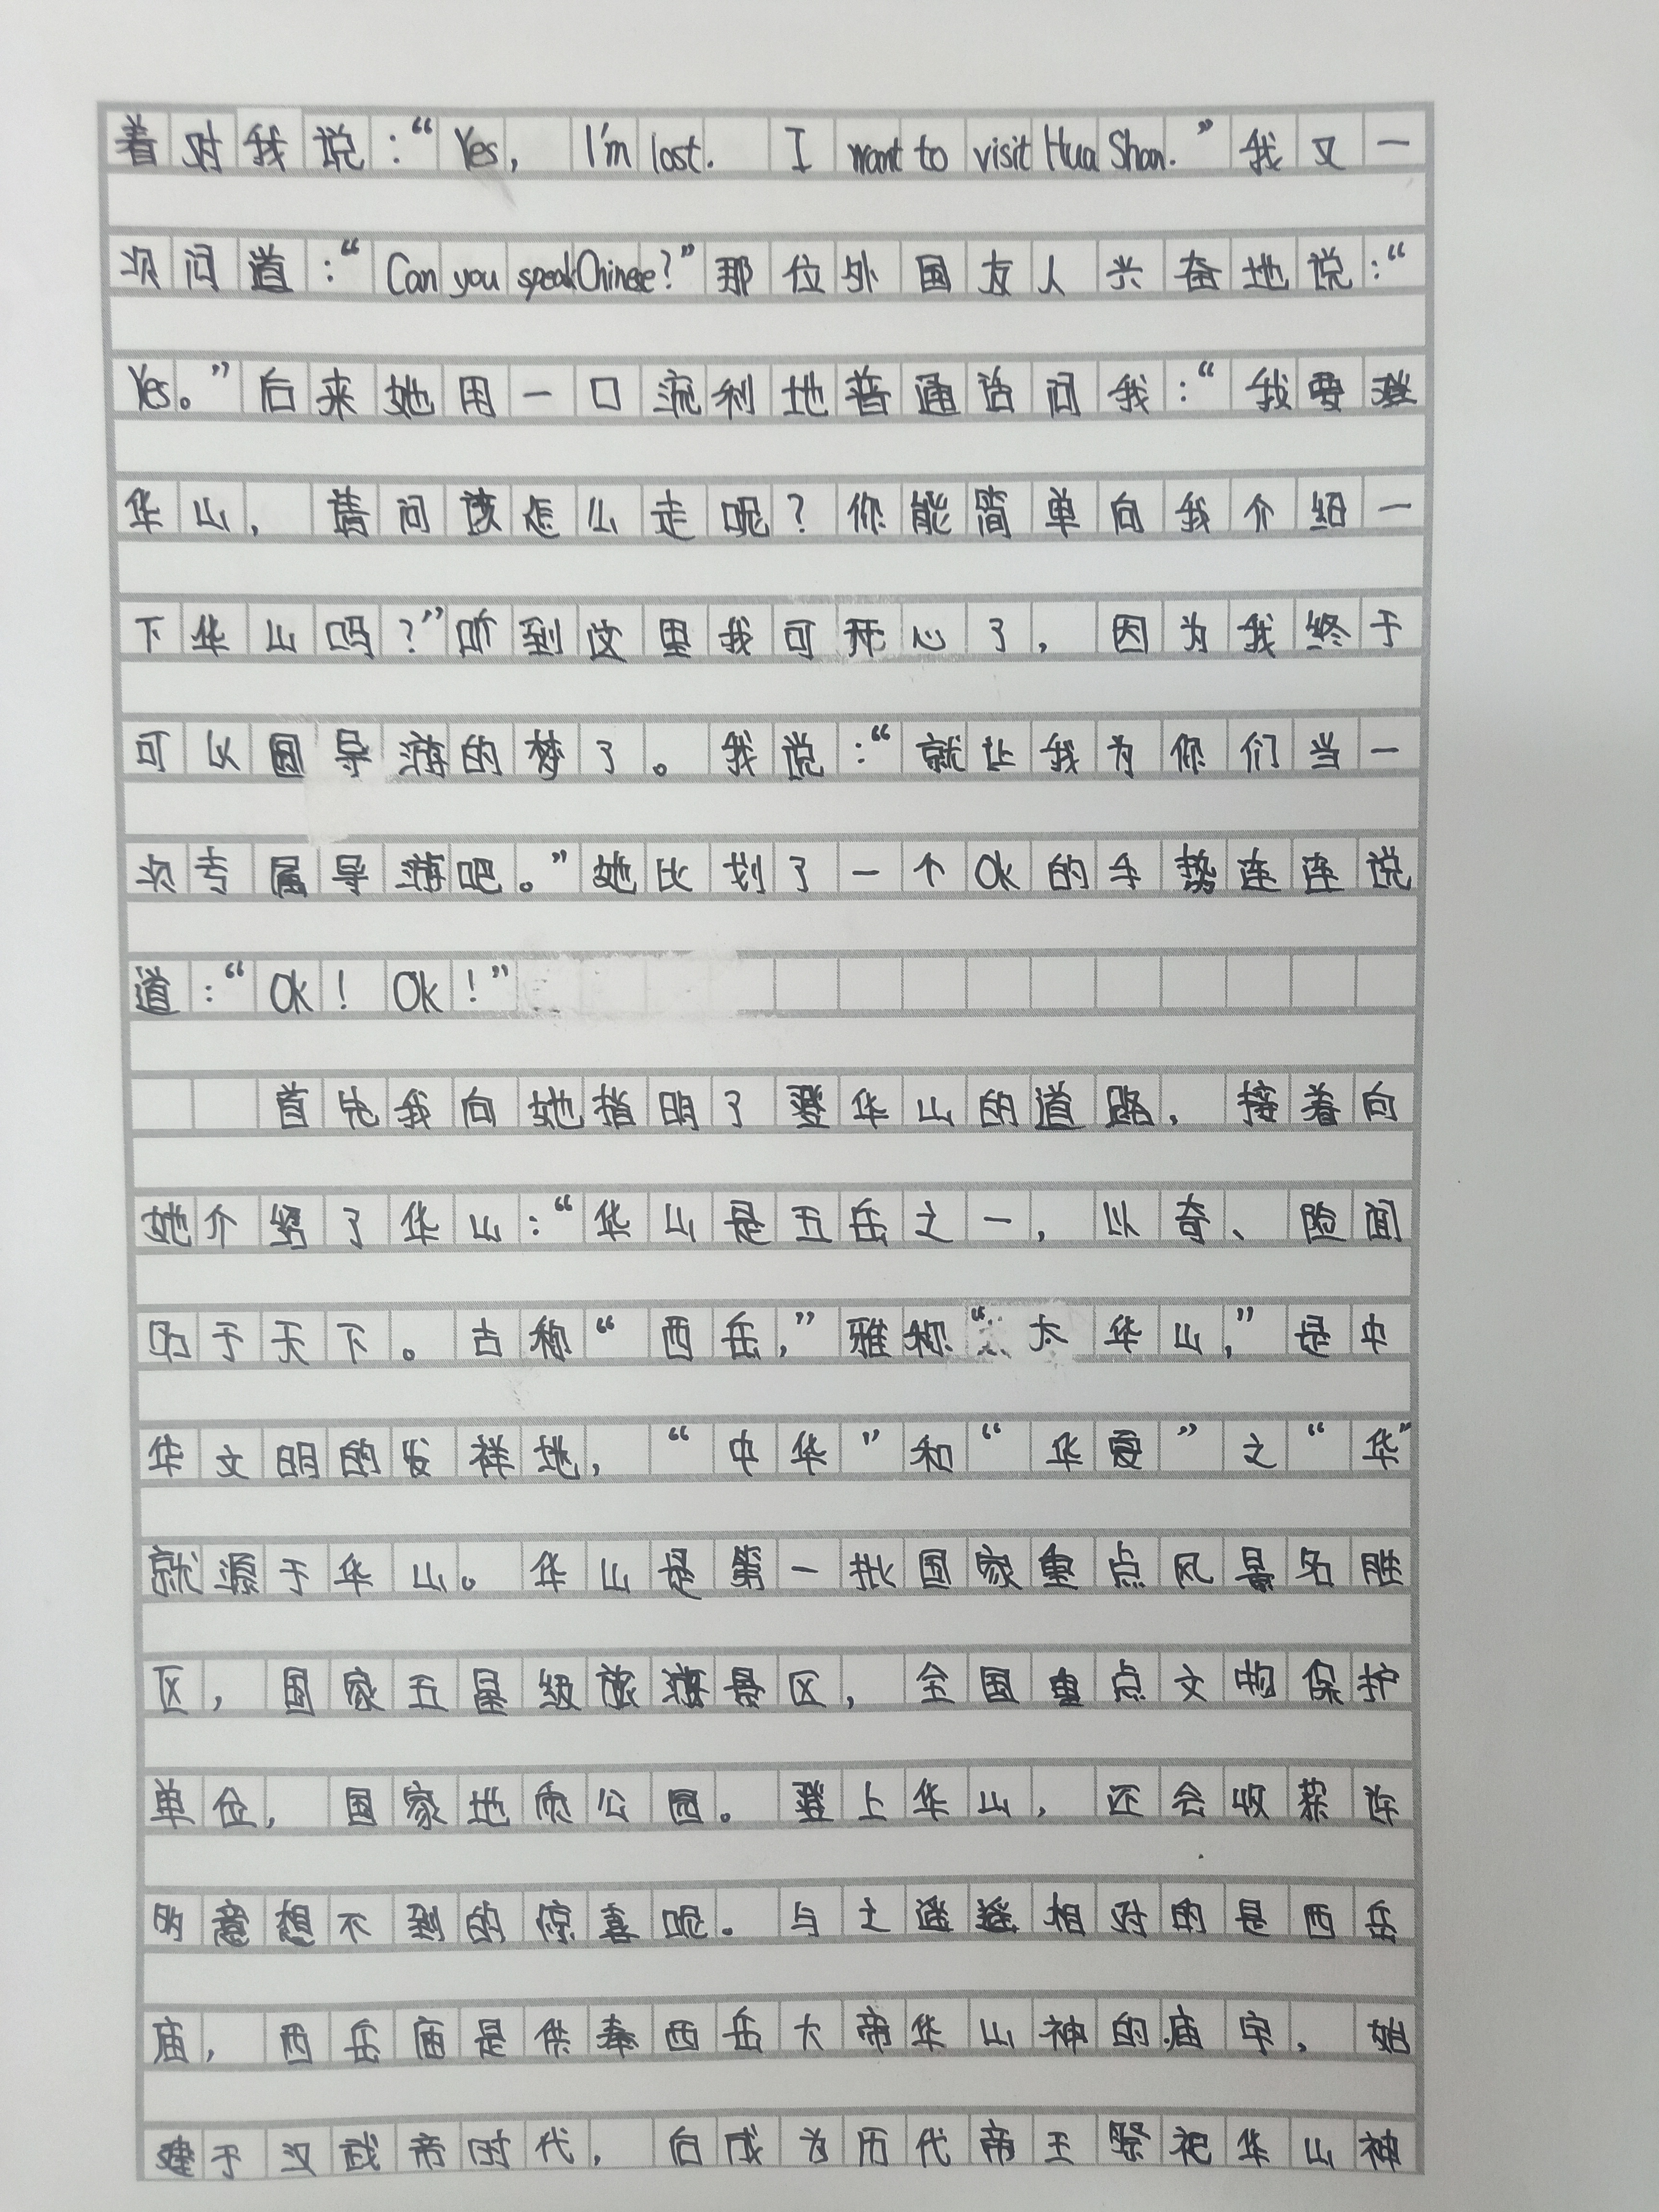 着对我说：“Yes, I'm lost. I want to visit Hua Shan.”我又一
次问道：“Can you speak Chinese?”那位外国友人兴奋地说：“
Yes。”后来她用一口流利地普通话问我：“我要登
华山，请问该怎么走呢？你能简单向我介绍一
下华山吗？”听到这里我可开心了，因为我终于
可以圆导游的梦了。我说：“就让我为你们当一
次专属导游吧。”她比划了一个Ok的手势连连说
道：“Ok！Ok！”
首先我向她指明了登华山的道路，接着向
她介绍了华山：“华山是五岳之一，以奇、险闻
名于天下。古称“西岳，”雅称“太华山，”是中
华文明的发祥地，“中华”和“华夏”之“华”
就源于华山。华山是第一批国家重点风景名胜
区，国家五星级旅游景区，全国重点文物保护
单位，国家地质公园。登上华山，还会收获许
多意想不到的惊喜呢。与之遥遥相对的是西岳
庙，西岳庙是供奉西岳大帝华山神的庙宇，始
建于汉武帝时代，后成为历代帝王祭祀华山神